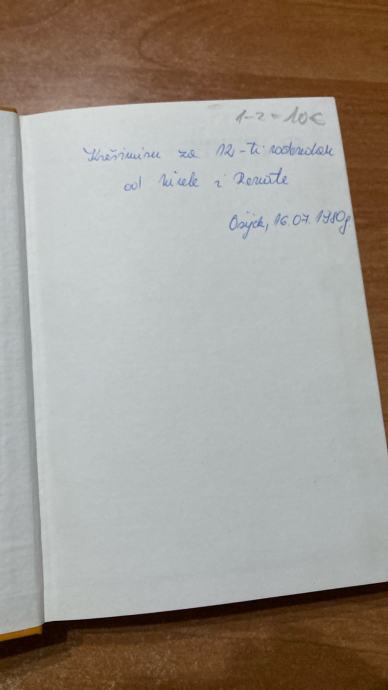 1-2 = 10€
Krešimiru za 12-ti rođendan
od Mirele i Renate
Osijek, 16.07.1980g